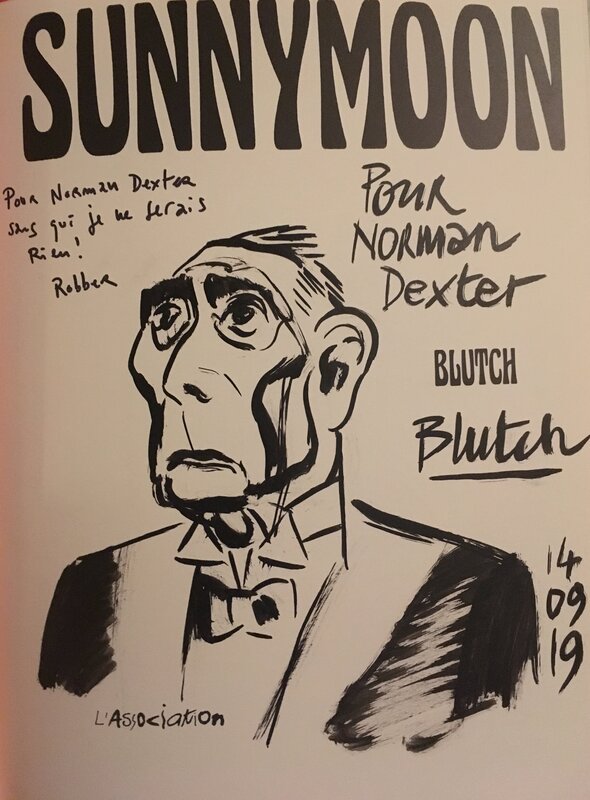 SUNNYMOON
Pour Norman Dexter
sans qui je ne serais
Rien!
Robber
Pour
Norman
Dexter
BLUTCH
Blutch
14
09
19
L'Association